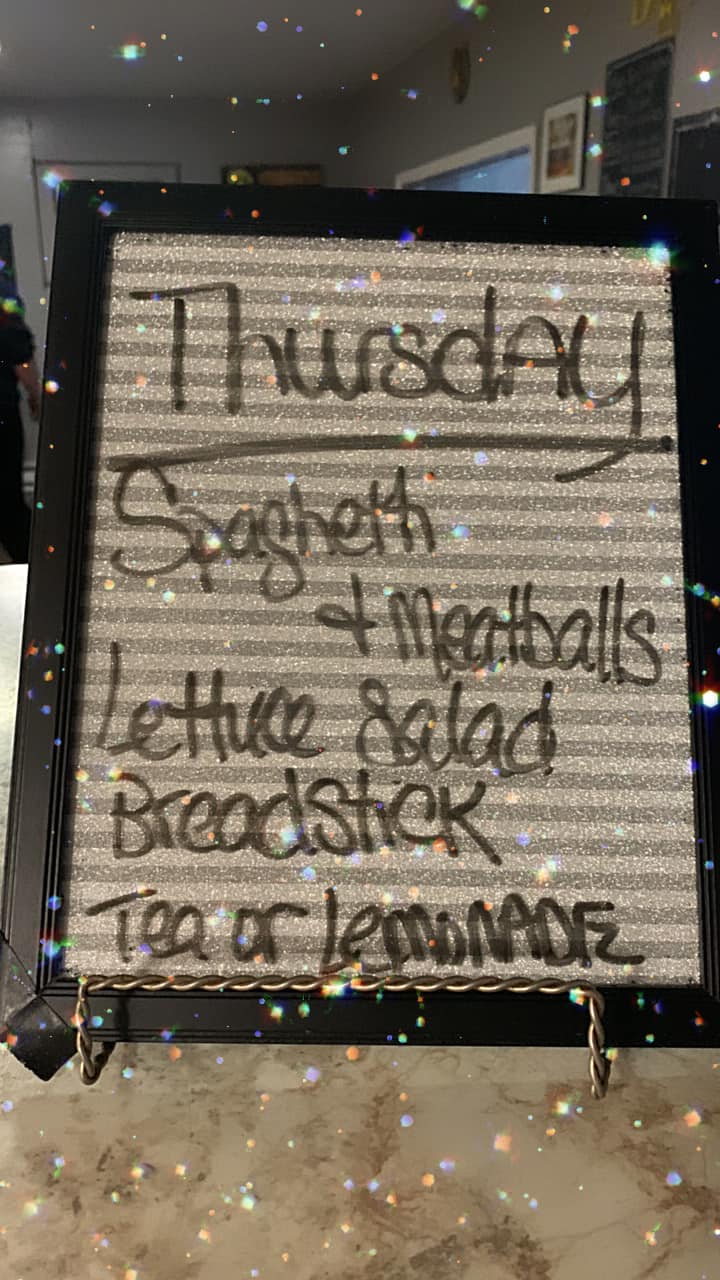 Thursday
Spaghetti
& Meatballs
Lettuce Salad
Breadstick
Tea or LemoNADE